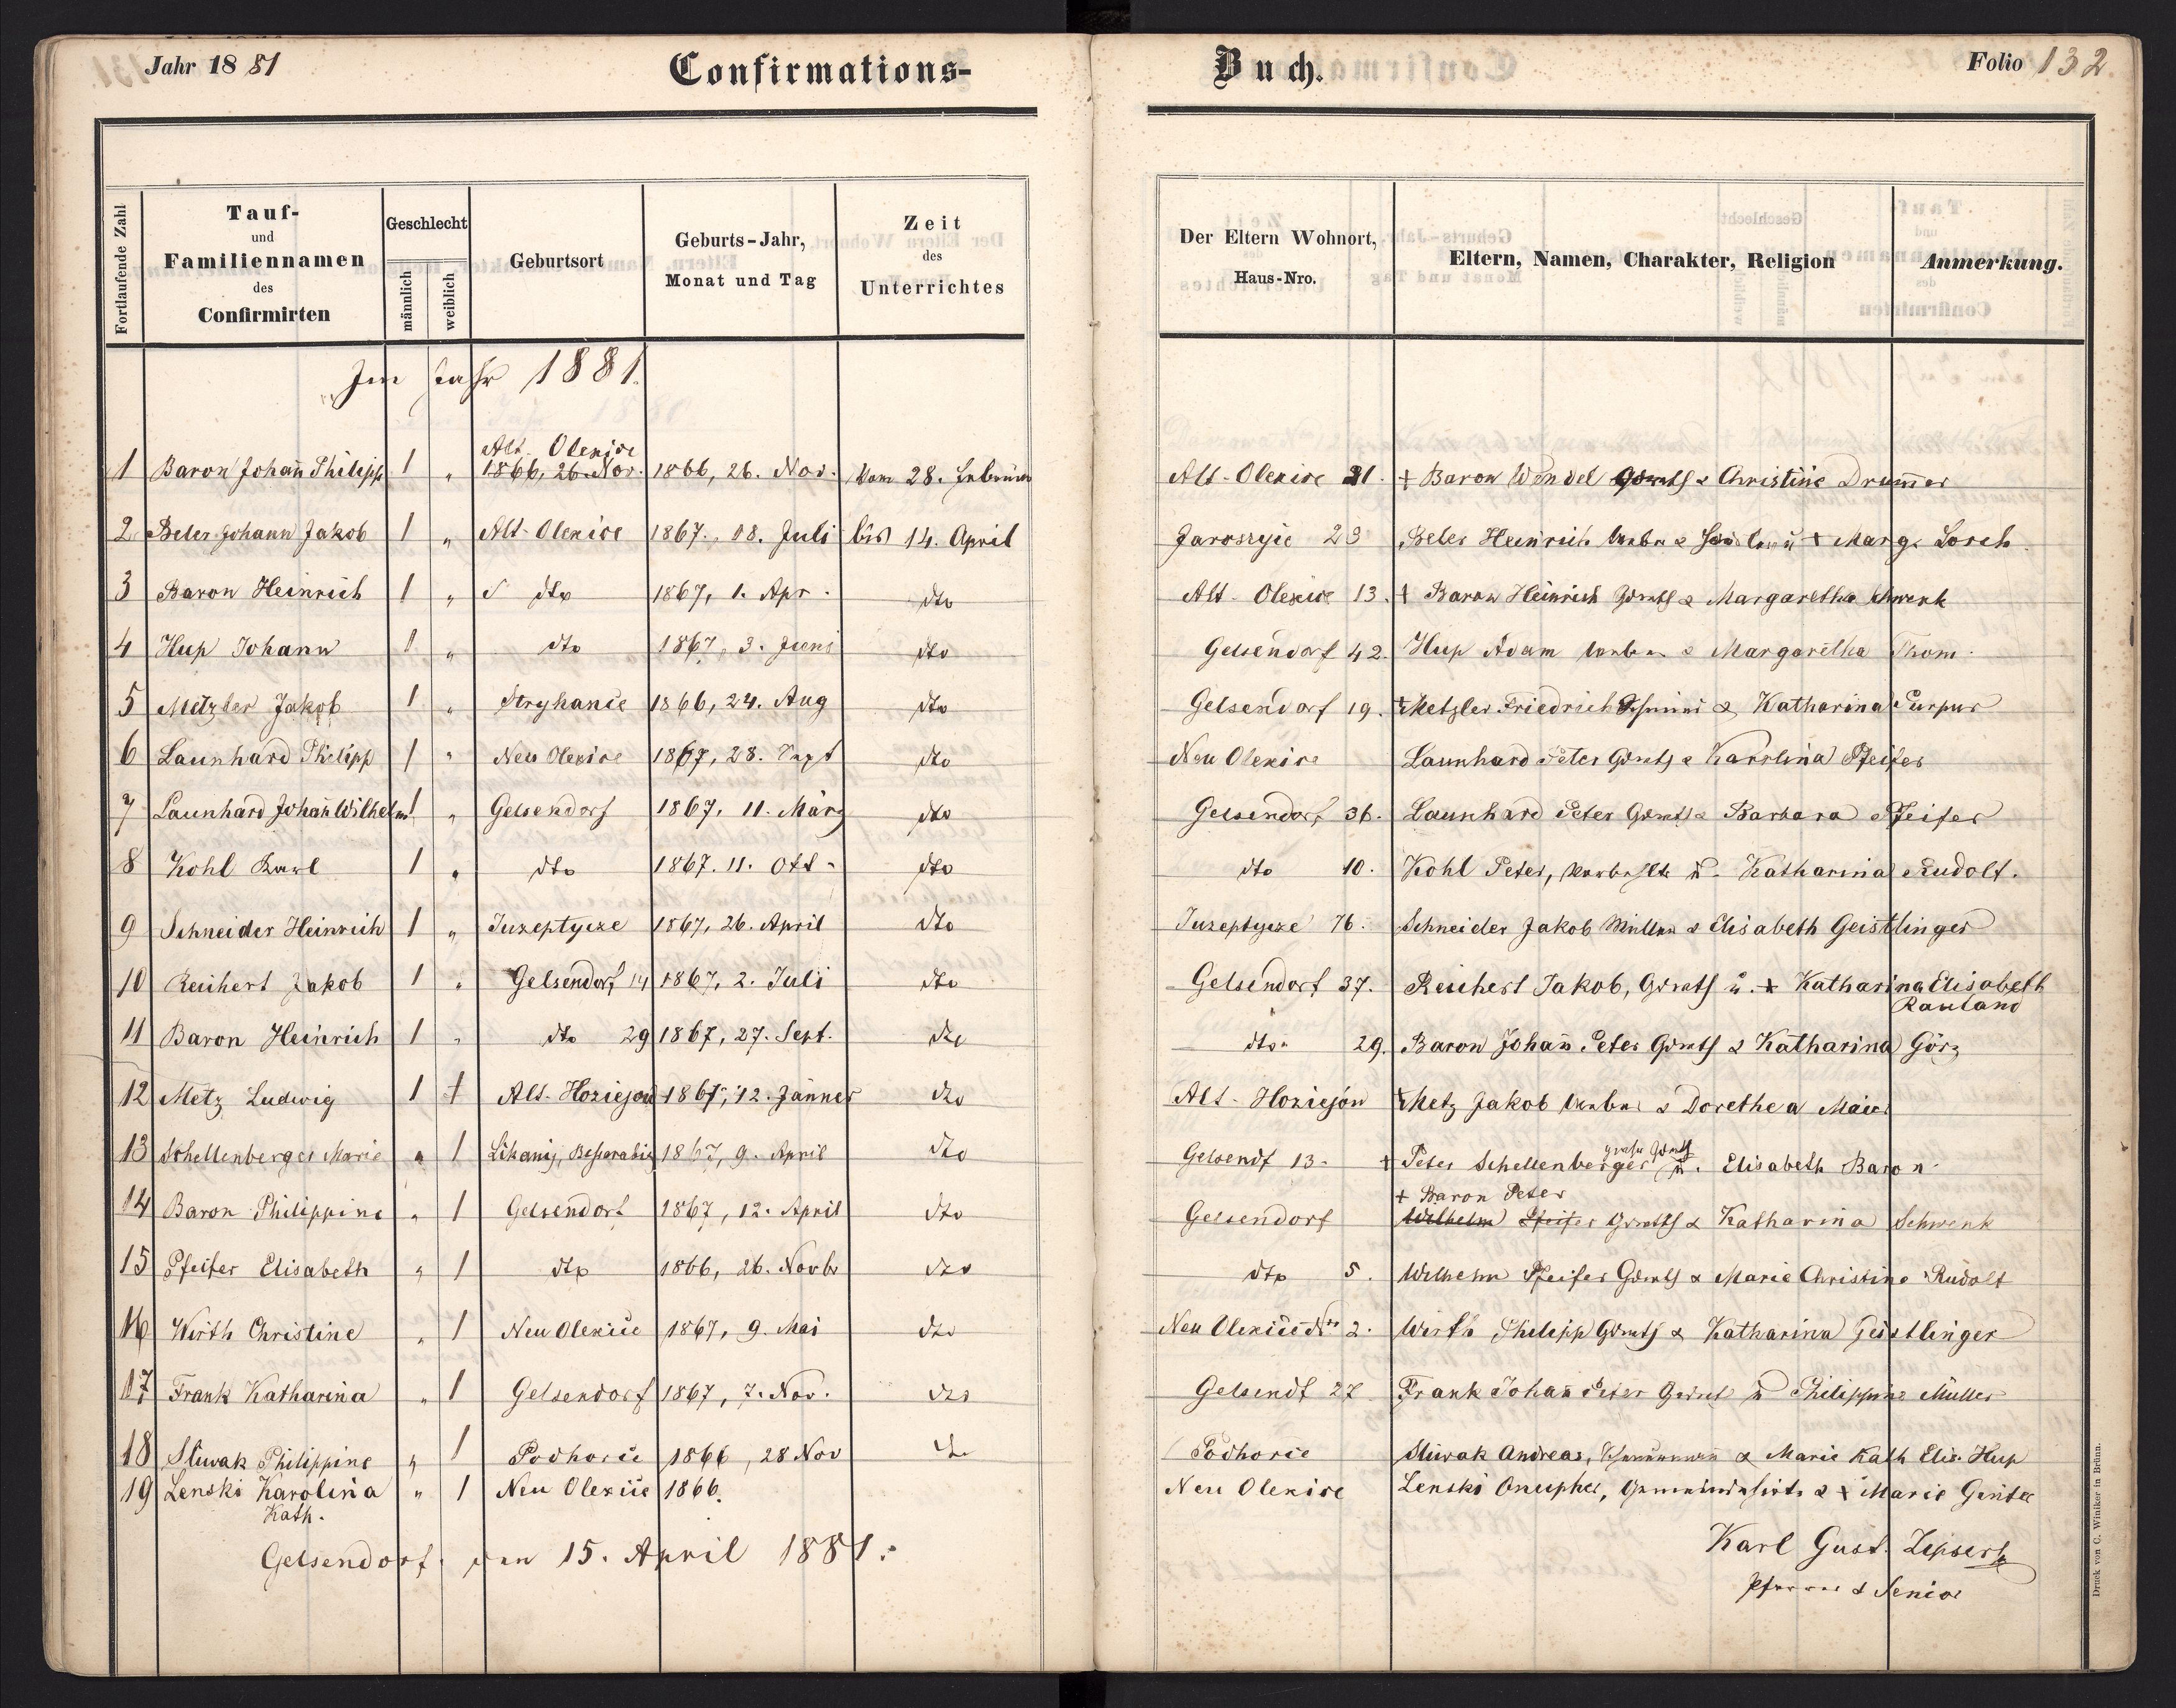 Jahr 1881
Confirmations-
Buch.
Folio 132
Fortlaufende Zahl
Tauf-
und
Familiennamen
des
Confirmirten
Geschlecht
männlich
weiblich
Geburtsort
Geburts-Jahr,
Monat und Tag
Zeit
des
Unterrichtes
Der Eltern Wohnort,
Haus-Nro.
Eltern, Namen, Charakter, Religion
Anmerkung.
Im Jahr 1881.
Alt-Olexice
1 Baron Johañ Philipp 1 " 1866, 26. Nov. 1866, 26. Nov. vom 28. Februar Alt-Olexice 21. + Baron Wendel Grwths & Christine Drum̄er
2 Beler Johann Jakob 1 " Alt-Olexice 1867, 18. Juli bis 14. April 23 Beler Heinrich & + Marg. Lorch
3 Baron Heinrich 1 " dto 1867, 1. Apr. dto Alt-Olexice 13. + Baron Heinrich Grwths & Margaretha Schwenk
4 Hup Johann 1 " dto 1867, 3. Juni dto Gelsendorf 42. Hup Adam & Margaretha Thom.
5 Metzler Jakob 1 " Stryhance 1866, 24. Aug dto Gelsendorf 19. + Metzler Friedrich & Katharina Purpur
6 Launhard Philipp 1 " Neu Olexice 1867, 28. Sept dto Neu Olexice Launhard Peter Grwths & Karolina Pfeifer
7 Launhard Johañ Wilhelm 1 " Gelsendorf 1867, 11. März dto Gelsendorf 36. Launhard Peter Grwths & Barbara Pfeifer
8 Kohl Karl 1 " dto 1867. 11. Okt. dto dto 10. Kohl Peter, u. Katharina Rudolf.
9 Schneider Heinrich 1 " Juseptycze 1867, 26. April dto Juseptycze 76. Schneider Jakob Müller & Elisabeth Geistlinger
10 Reichert Jakob 1 " Gelsendorf 14 1867, 2. Juli dto Gelsendorf 37. Reichert Jakob, Grwths u. + Katharina Elisabeth
Rauland
11 Baron Heinrich 1 " dto 29 1867, 27. Sept. dto dto 29. Baron Johañ Peter Grwths & Katharina Görz
12 Metz Ludwig 1 + Alt-Hoziejow 1867, 12. Jänner dto Alt-Hoziejow + Metz Jakob & Dorethea Maier
13 Schellenberger Marie " 1 1867, 9. April dto Gelsendf 13. + Peter Schellenberger u. Elisabeth Baron
+ Baron Peter
14 Baron Philippine " 1 Gelsendorf 1867, 12. April dto Gelsendorf Wilhelm Pfeifer Grwths & Katharina Schwenk
15 Pfeifer Elisabeth " 1 dto 1866, 26. Novbr dto dto 5. Wilhelm Pfeifer Grwths & Marie Christine Rudolf
16 Wirth Christine " 1 Neu Olexice 1867, 9. Mai dto Neu Olexice Nro 2. Wirth Philipp Grwths & Katharina Geistlinger
17 Frank Katharina " 1 Gelsendorf 1867, 7. Nov. dto Gelsendf 27 Frank Johañ Peter Grwths u Philippine Müller
18 Sliwak Philippine " 1 Podhorce 1866, 28 Nov dto Podhorce Sliwak Andreas, & Marie Kath Elis. Hup
19 Lenski Karolina " 1 Neu Olexice 1866. Neu Olexice Lenski Onupher, Gemeindehirte & + Marie Genter
Kath.
Gelsendorf, den 15. April 1881.
Karl Gust. Lipsert
Pfarrer & Senior
Druck von C. Winiker in Brünn.